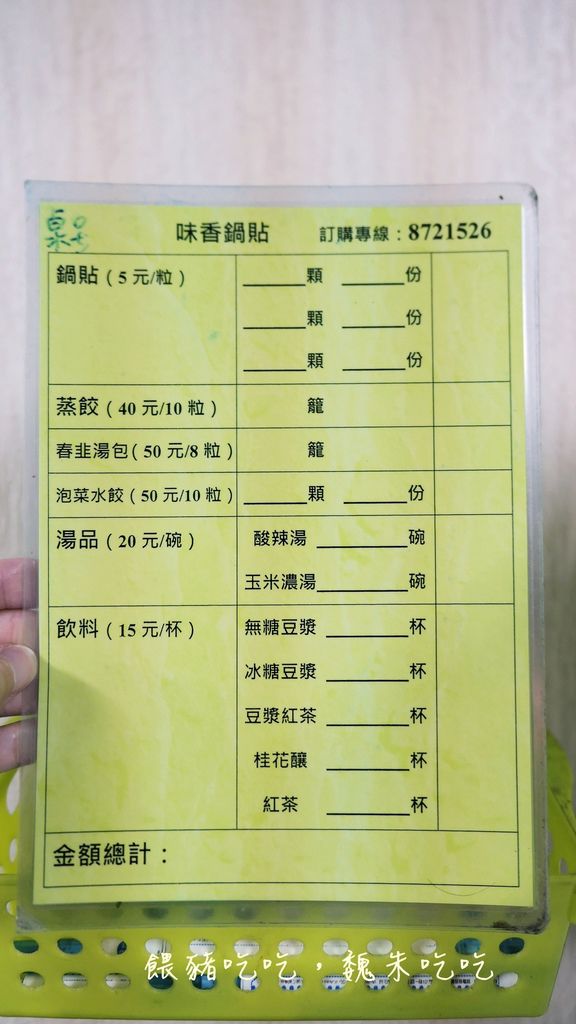 味香鍋貼 訂購專線：8721526
鍋貼（5 元/粒） ______顆 ______份
______顆 ______份
______顆 ______份
蒸餃（40 元/10 粒） 籠
春韭湯包（50 元/8 粒） 籠
泡菜水餃（50 元/10 粒） ______顆 ______份
湯品（20 元/碗） 酸辣湯 ________碗
玉米濃湯________碗
飲料（15 元/杯） 無糖豆漿 ________杯
冰糖豆漿 ________杯
豆漿紅茶 ________杯
桂花釀 ________杯
紅茶 ________杯
金額總計：
餵豬吃吃，魏朱吃吃